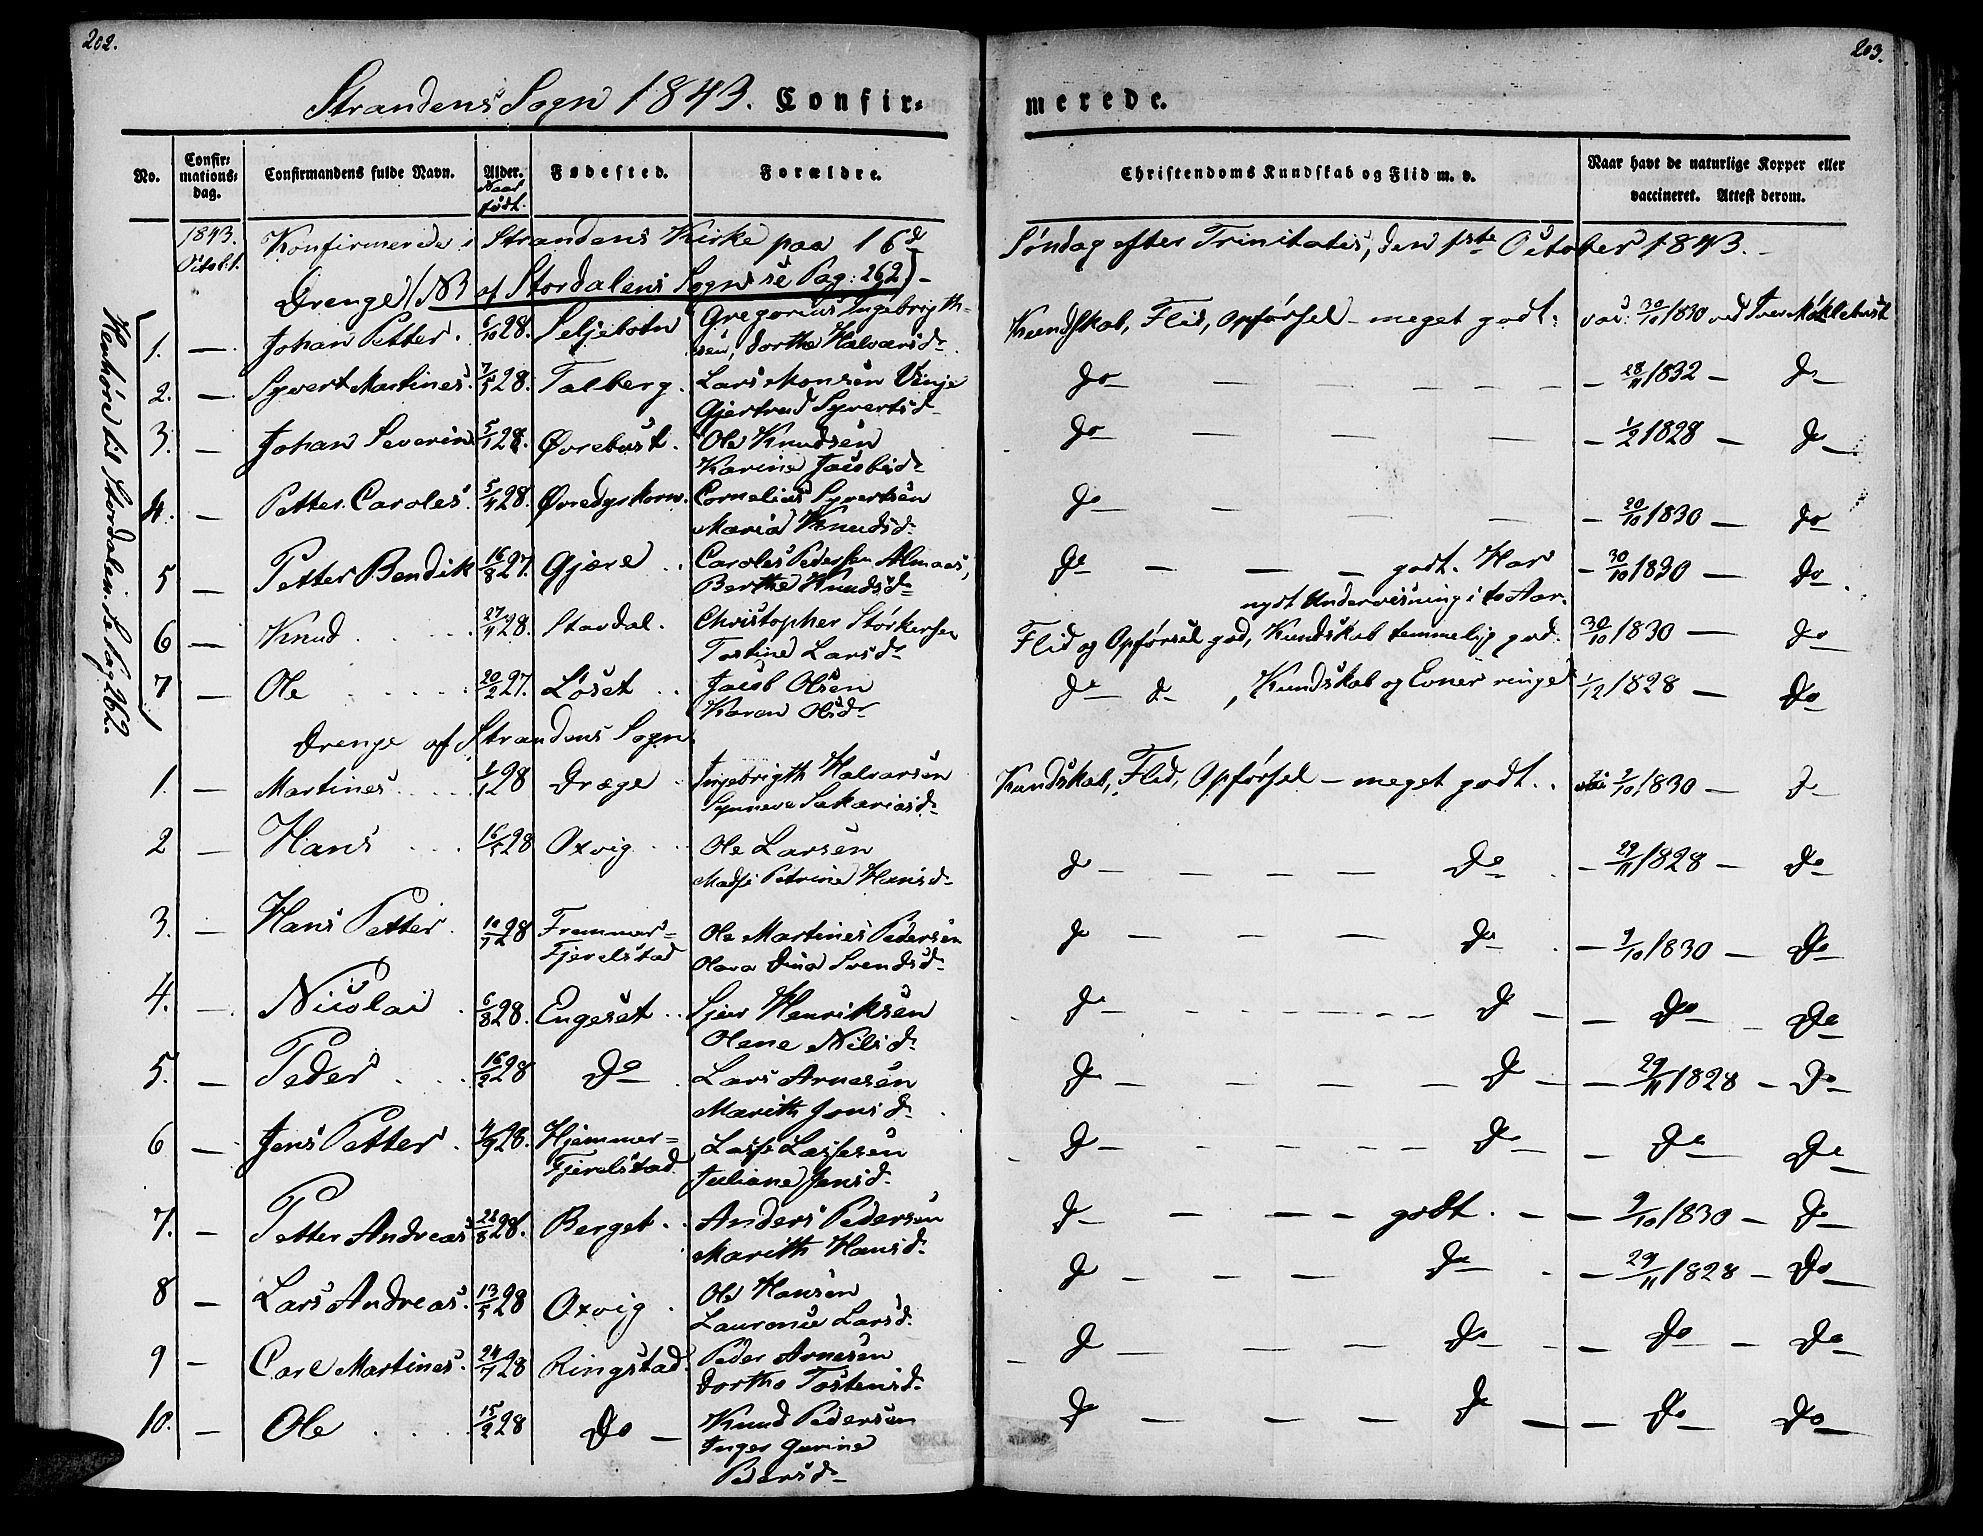 202.
203.
Strandens Sogn 1843. Confir-
merede.
No.
Confir-
mations-
dag.
Confirmandens fulde Navn.
Alder.
Naar
født.
Fødested.
Forældre.
Christendoms Kundskab og Flid m. v.
Naar havt de naturlige Kopper eller
vaccineret. Attest derom.
1843.
Octob. 1.
Konfirmerede i Strandens Kirke paa 16d Søndag efter Trinitatis, den 1ste October 1843.
Drenge (NB af Stordalens Sogn se Pag: 262)
Henhøre til Stordalen. Se Pag 262.
1. — Johan Petter. 6/10 28. Seljebotn Gregorius Ingebrigth- Kundskab, Flid, Opførsel – meget godt. vac. 30/10 1830 ved Iver Møklebust
sen, Dorthe Halvarsd.
2. — Syvert Martines. 7/5 28. Talberg. Lars Monsen Vinje do — — — — 28/11 1832 — do
Gjertrud Syvertsd.
3. — Johan Severin 5/1 28. Øvrebust. Ole Knudsen do — — — — 1/2 1828 — do
Karine Jacobsd.
4. — Petter Caroles. 5/4 28. Øvredyskorn. Cornelius Syvertsen do — — — — 20/10 1830 — do
Maria Knudsd.
5 — Petter Bendik 16/8 27. Gjære .. Caroles Pedersen Almaas, do — — — godt. Har — 30/10 1830 — do
Berthe Knudsd. nydt Undervisning i to Aar.
6 — Knud 27/4 28. Stordal. Christopher Størkersen Flid og Opførsel god, Kundskab temmelig god. 30/10 1830 — do
Tostine Larsd.
7 — Ole 20/2 27. Løset .. Jacob Olsen do do, Kundskab og Evner ringe 1/12 1828 — do
Karen Olsd.
Drenge af Strandens Sogn.
1. — Martines 1/1 28 Dræge Ingebrigth Halvarsen Kundskab, Flid, Opførsel – meget godt. vac 9/10 1830 — do
Synneve Sakariasd.
2 — Hans 16/5 28 Oxvig Ole Larsen do — — — — do — 29/11 1828 — do
Madse Petrine Hansd.
3. — Hans Petter. 10/7 28 Fremmer- Ole Martines Pedersen do — — — do — 9/10 1830 — do
Fjerelstad Olava Dina Svendsd.
4. — Nicolai 6/8 28. Engeset .. Sjur Henriksen do — — — do — do — do
Olene Nilsd.
5. — Peder 16/2 28 Do Lars Arnesen do — — — do — 29/11 1828 — do
Marith Jonsd.
6 — Jens Petter. 4/9 28. Hjemmer- Lasse Lassesen do — — — do — do — do
Fjerelstad Juliane Jensd.
7. — Petter Andreas 22/8 28. Berget. Anders Pedersen do — — — godt. — 9/10 1830 — do
Marith Hansd.
8 — Lars Andreas. 13/5 28 Oxvig. Ole Hansen do — — — do — 29/11 1828 — do
Lauronce Larsd.
9 — Carl Martines. 24/7 28 Ringstad. Peder Arnesen do — — — do — do — do
Dorthe Tostensd.
10. — Ole 15/2 28 Do — Knud Pedersen do — — — do — do — do
Inger Gurine
Pedersd.